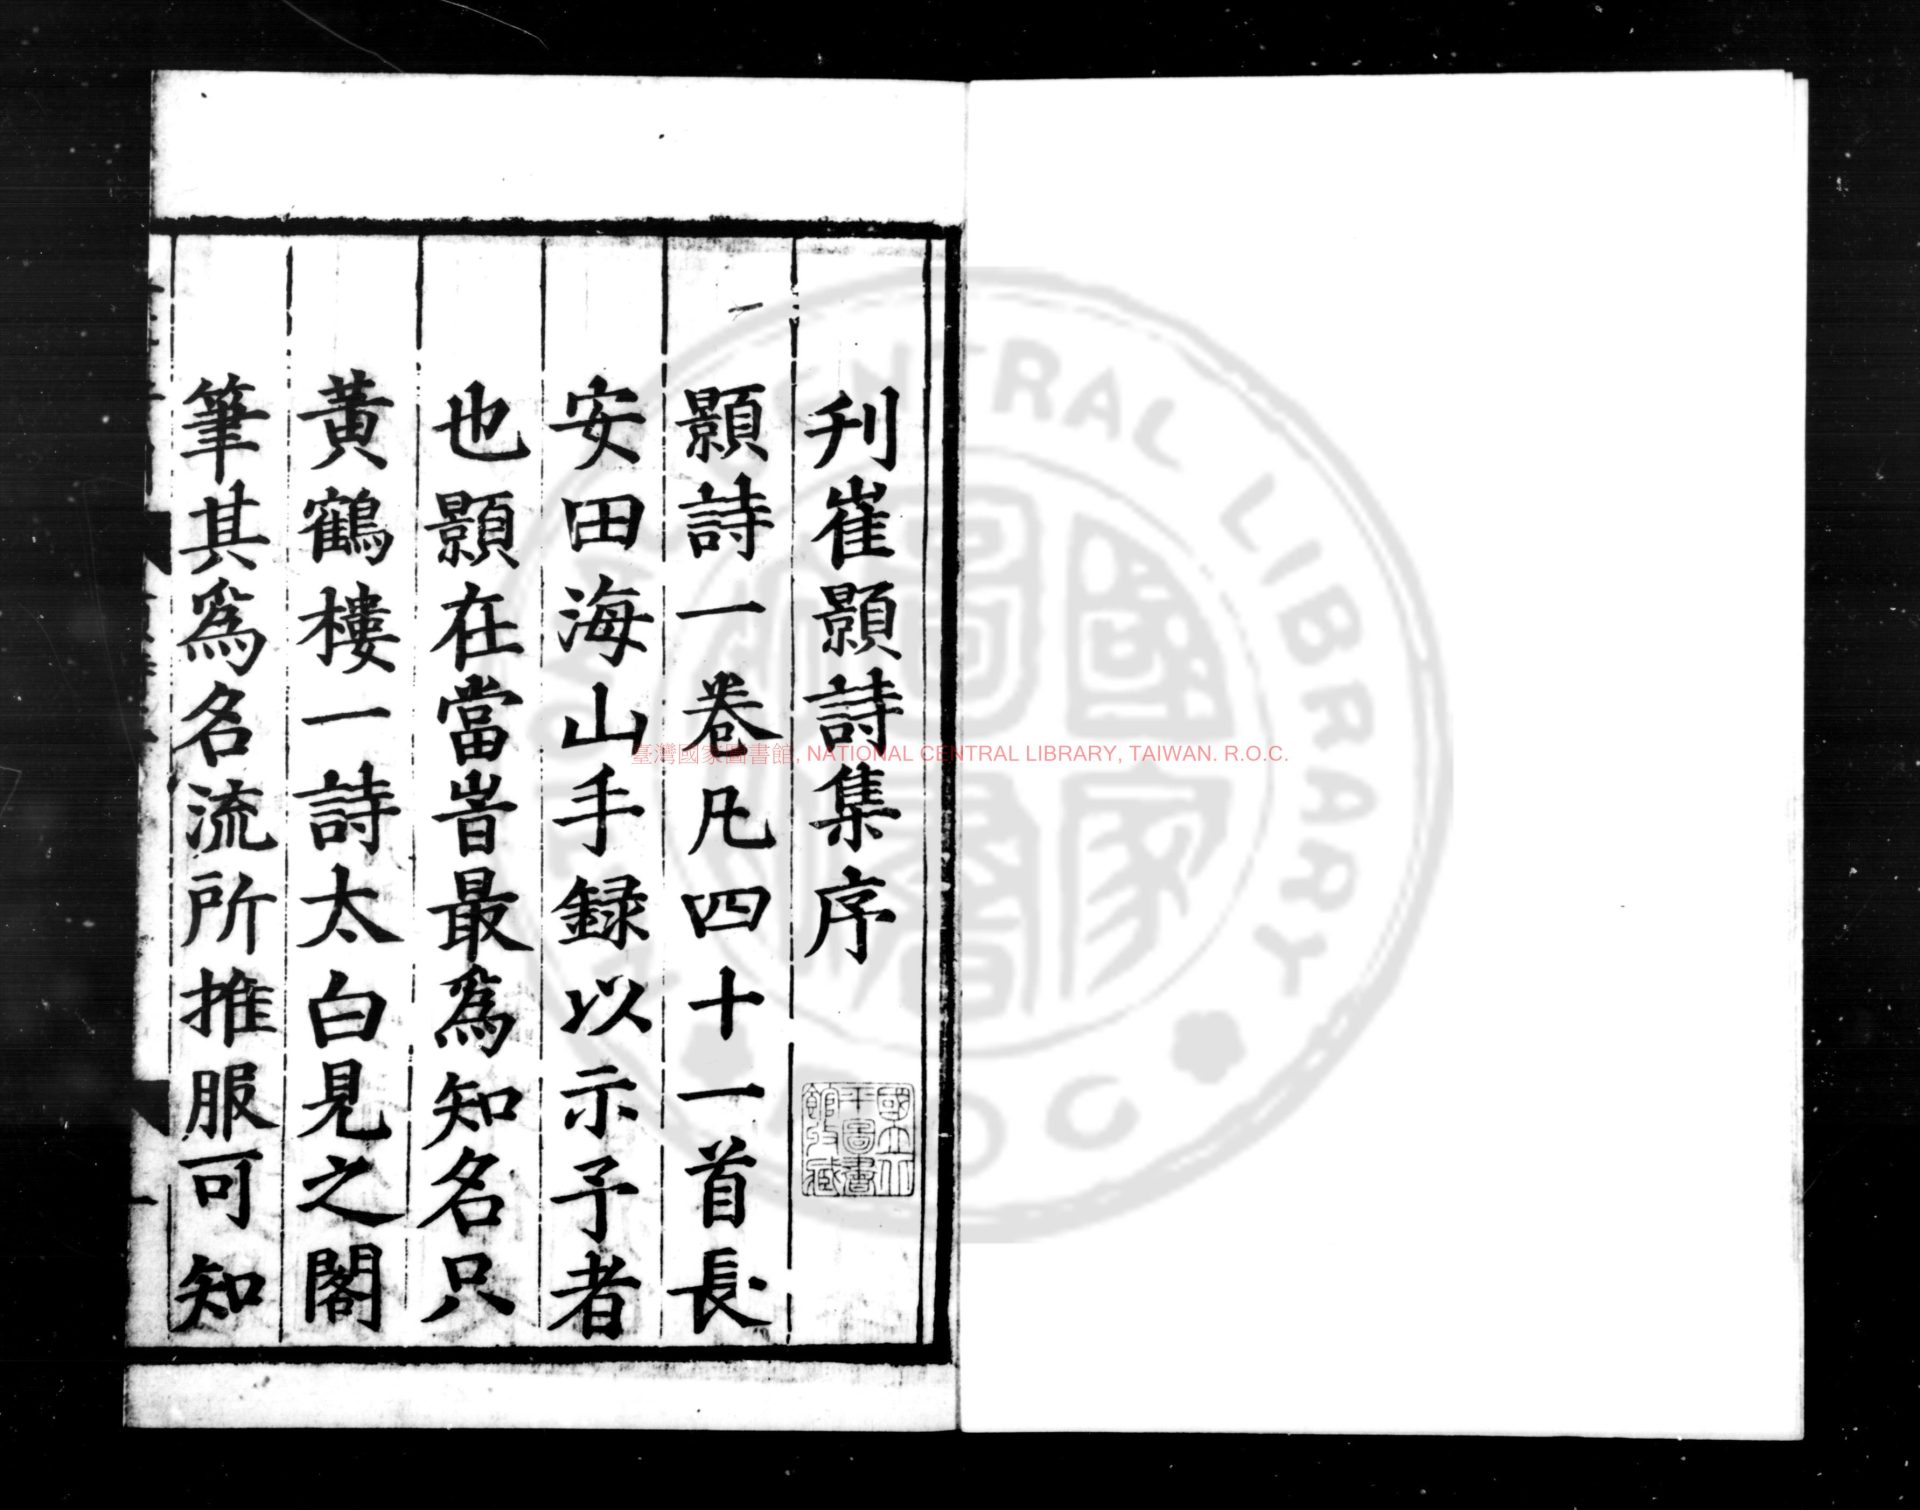 刋崔顥詩集序
顥詩一卷凡四十一首長
安田海山手録以示予者
也顥在當旹最爲知名只
黄鶴樓一詩太白見之閣
筆其爲名流所推服可知
國立北平圖書館收藏
臺灣國家圖書館, NATIONAL CENTRAL LIBRARY, TAIWAN. R.O.C.